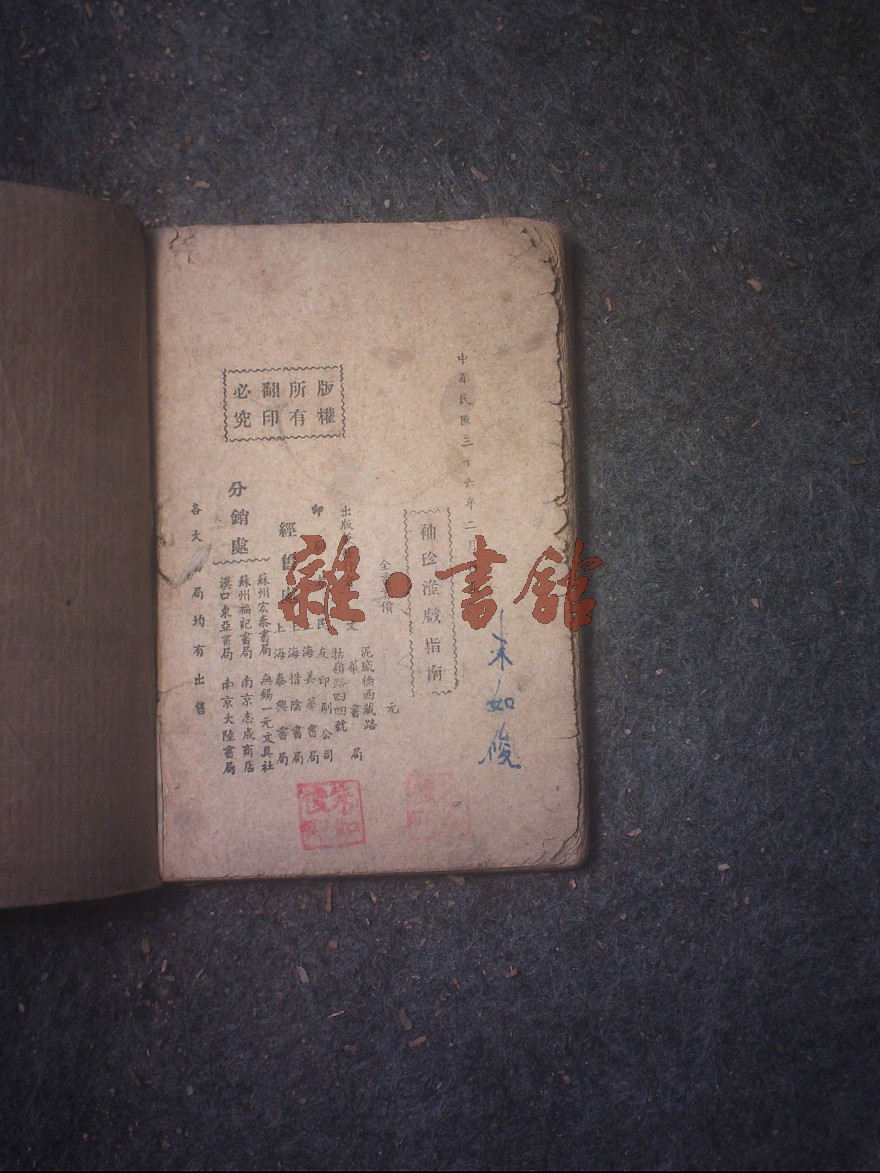 中華民國三十六年二月
朱如俊
袖珍淮戲指南
全 價 元
出版 文華書局
泥城橋西藏路
牯嶺路四四號
印 民友印刷公司
經售處
上海美華書局
上海惜陰書局
上海泰興書局
分銷處
蘇州宏泰書局 無錫一元文具社
蘇州福記書局 南京志成商店
漢口東亞書局 南京大陸書局
各大 局均有出售
版權所有
翻印必究
雜·書館